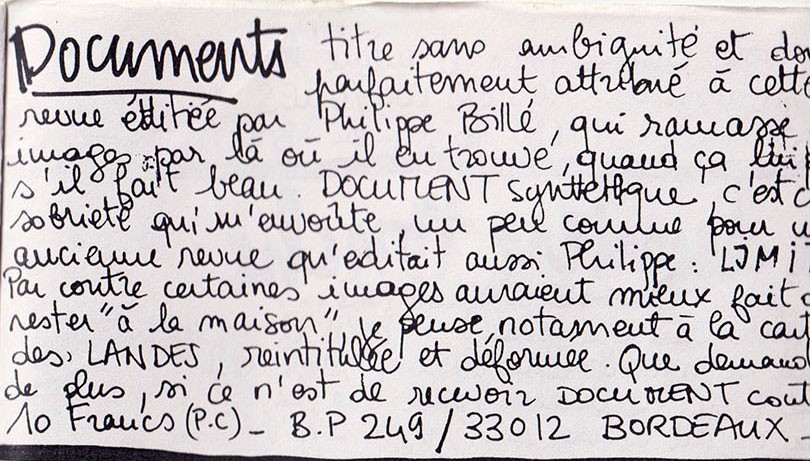 Documents titre sans ambiguité et do
parfaitement attribué à cette
revue éditiée par Philippe Billé, qui ramasse
images par là où il en trouve, quand ça lui
s'il fait beau. DOCUMENT synthétique, c'est
sobrieté qui m'envoûte, un peu comme pour u
ancienne revue qu'editait aussi Philippe : LJMi
Par contre certaines images auraient mieux fait
rester "à la maison" je pense notasment à la cart
des LANDES, reintitulée et déformée. Que demand
de plus, si ce n'est de recevoir DOCUMENT cont
10 Francs (P.C) _ B.P 249 / 33012 BORDEAUX _